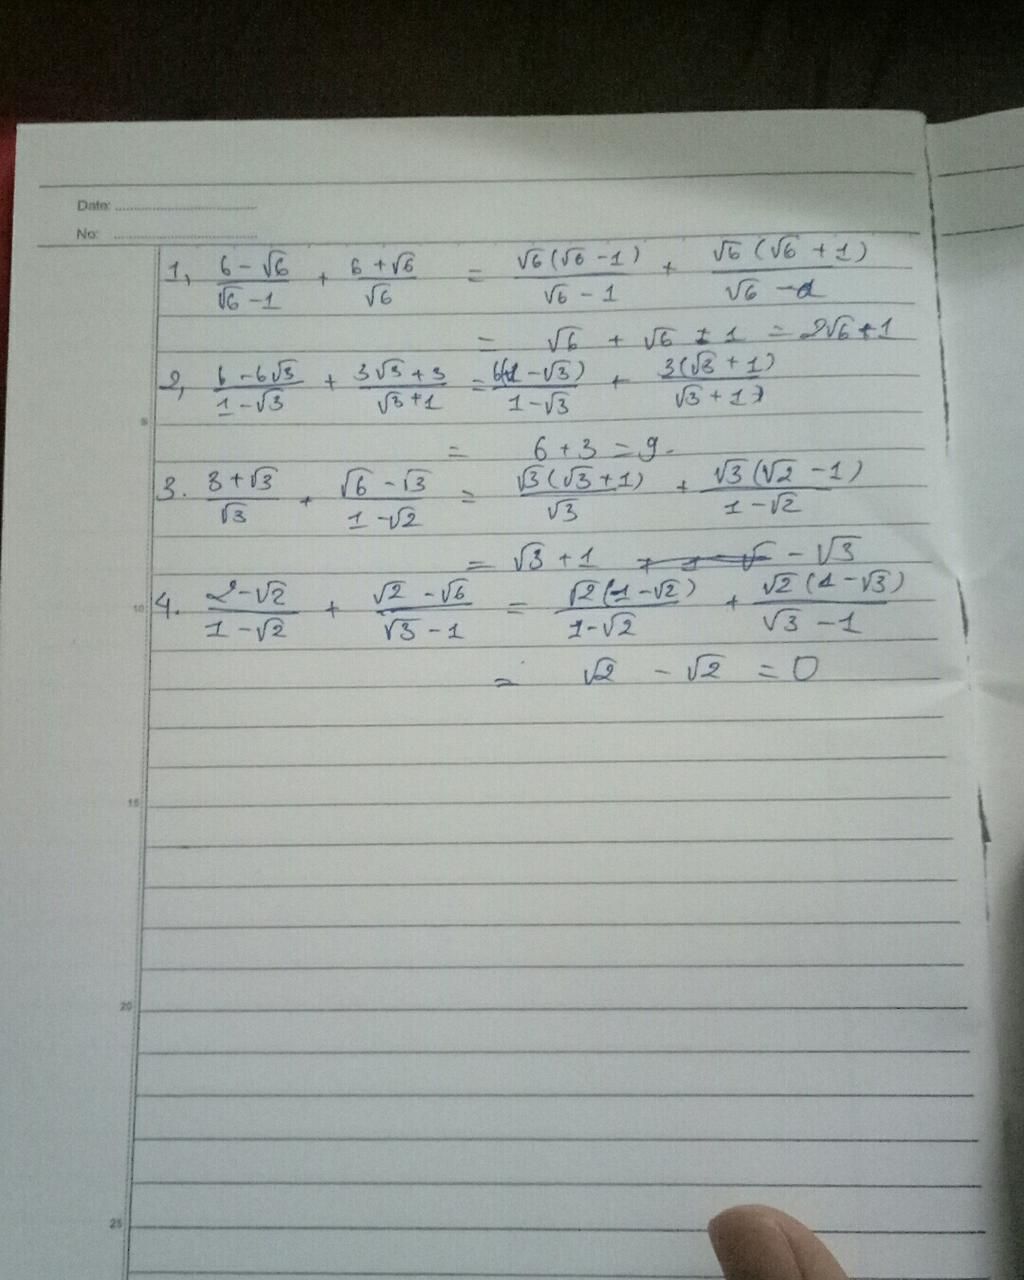 Date: ..............................
No: ..............................
1, (6 - √6)/(√6 - 1) + (6 + √6)/√6 = √6(√6 - 1)/(√6 - 1) + √6(√6 + 1)/(√6 - 1)
= √6 + √6 + 1 = 2√6 + 1
2, (6 - 6√3)/(1 - √3) + (3√3 + 3)/(√3 + 1) = 6(1 - √3)/(1 - √3) + 3(√3 + 1)/(√3 + 1)
5
= 6 + 3 = 9.
3. (3 + √3)/√3 + (√6 - √3)/(1 - √2) = √3(√3 + 1)/√3 + √3(√2 - 1)/(1 - √2)
= √3 + 1 - √3
10
4. (2 - √2)/(1 - √2) + (√2 - √6)/(√3 - 1) = √2(1 - √2)/(1 - √2) + √2(1 - √3)/(√3 - 1)
= √2 - √2 = 0
15
20
25